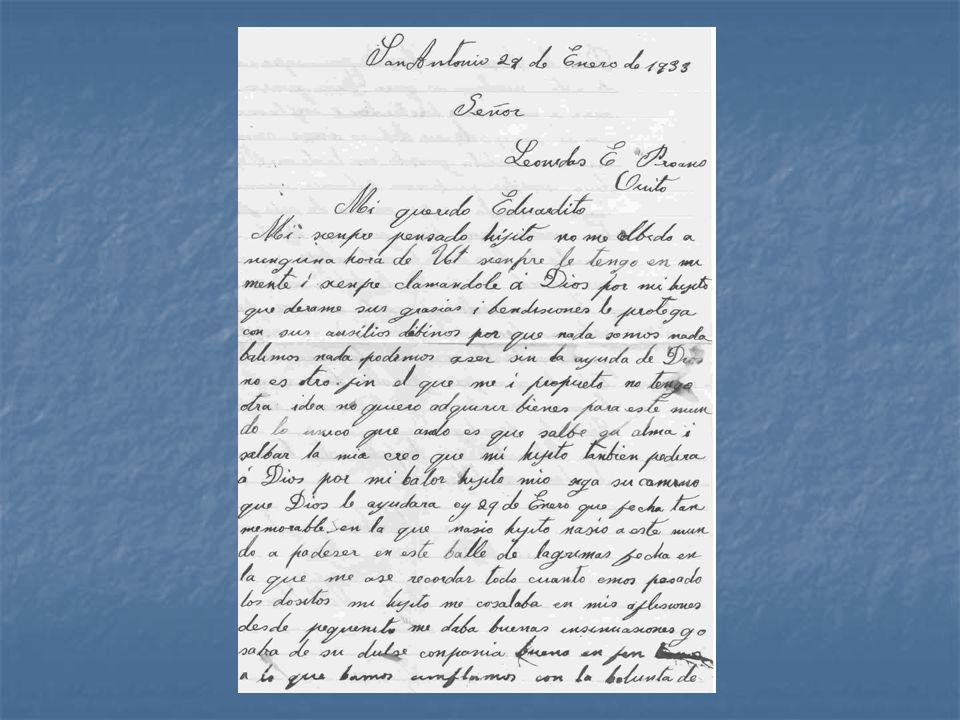 San Antonio 29 de Enero de 1933
Señor
Leonidas E Proano
Quito
Mi querido Eduardito
Mi sienpre pensado hijito no me olbedo a
ninguna hora de Ust sienpre le tengo en mi
mente i sienpre clamandole á Dios por mi hijito
que derame sus grasias i bendisiones le protega
con sus ausilios dibinos por que nada somos nada
balimos nada podemos aser sin la ayuda de Dios
no es otro fin el que me i propueto no tengo
otra idea no quiero adquirir bienes para este mun
do lo unico que ando es que salbe alma i
salbar la mia creo que mi hijito tanbien pedira
á Dios por mi balor hijito mio siga su camino
que Dios le ayudara oy 29 de Enero que fecha tan
memorable en la que nasio hijito nasio a este mun
do a padeser en este balle de lagrimas fecha en
la que me ase recordar todo cuanto emos pasado
los dositos mi hijito me cosolaba en mis aflisiones
desde pequenito me daba buenas insinuasiones go
saba de su dulse conpania bueno en fin
a lo que bamos cunplamos con la bolunta de